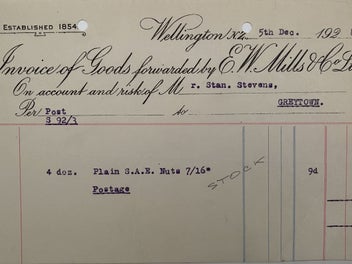 ESTABLISHED 1854.
Wellington N.Z. 5th Dec. 192
Invoice of Goods forwarded by E.W. Mills & Co L
On account and risk of M r. Stan. Stevens,
GREYTOWN.
Per Post to
S 92/3
4 doz. Plain S.A.E. Nuts 7/16" 9d
Postage
STOCK